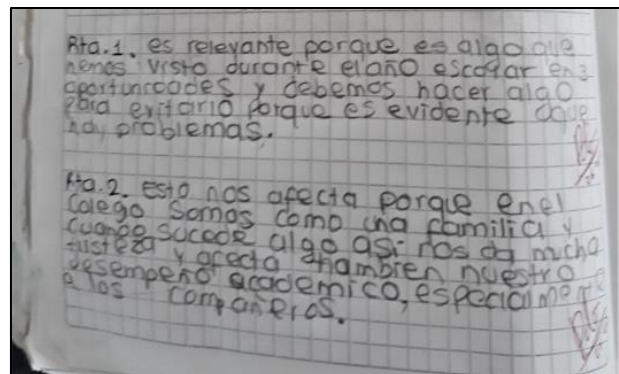 Rta.1. es relevante porque es algo que
hemos visto durante el año escolar en 3
oportunidades y debemos hacer algo
para evitarlo porque es evidente que
hay problemas.
Rta.2. esto nos afecta porque en el
colegio somos como una familia y
cuando sucede algo asi nos da mucha
tristeza y afecta thambien nuestro
desempeño academico, especialmente
a los compañeros.